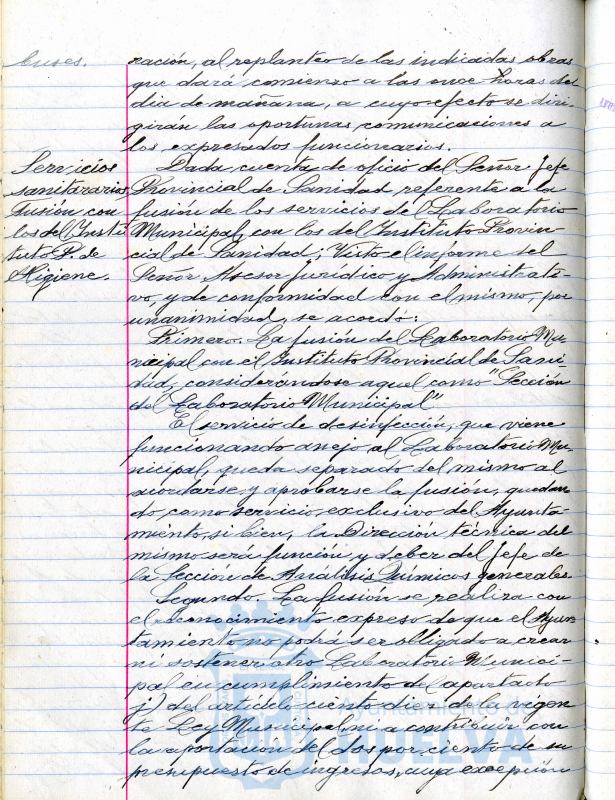 ración, al replanteo de las indicadas obras
que dará comienzo a las once horas del
dia de mañana, a cuyo efecto se diri-
girán las oportunas comunicaciones a
los expresados funcionarios.
Servicios
sanitararios,
Fusión con
los del Insti
tuto P. de
Higiene.
Dada cuenta de oficio del Señor Jefe
Provincial de Sanidad referente a la
fusión de los servicios del Laboratorio
Municipal, con los del Instituto Provin-
cial de Sanidad; Visto el informe del
Señor Asesor Jurídico y Administrati-
vo, y de conformidad con el mismo, por
unanimidad, se acordó:
Primero. La fusión del Laboratorio Mu-
nicipal con el Instituto Provincial de Sani-
dad, considerandose aquel como "Sección
del Laboratorio Municipal"
El servicio de desinfección, que viene
funcionando anejo al Laboratorio Mu-
nicipal, queda separado del mismo al
acordarse y aprobarse la fusión, quedan
do, como servicio, exclusivo del Ayunta-
miento, si bien, la Dirección técnica del
mismo será función y deber del Jefe de
la Sección de Análisis Químicos generales.
Segundo. La fusión se realiza con
el reconocimiento expreso de que el Ayun
tamiento no podrá ser obligado a crear
ni sostener otro Laboratorio Munici-
pal en cumplimiento del apartado
j) del articulo ciento diez de la vigen
te Ley Municipal, ni a contribuir con
la aportación del dos por ciento de su
presupuesto de ingresos, cuya excepción
Ayuntamiento de
HUELVA